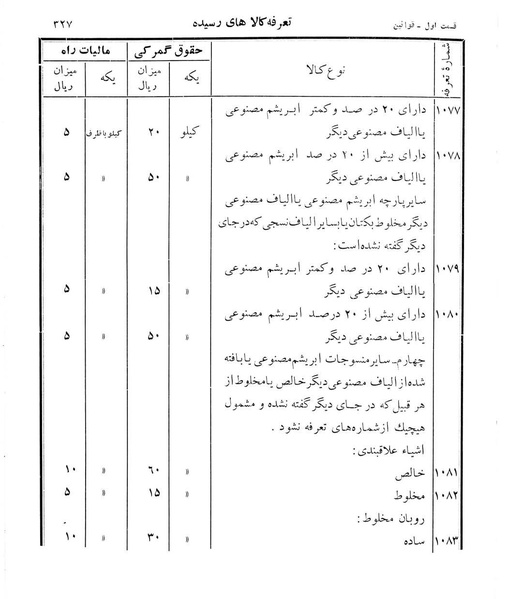 قسمت اول - قوانین
تعرفه کالا های رسیده
۳۲۷
شمارهٔ تعرفه
نوع کالا
حقوق گمرکی
مالیات راه
یکه
میزان ریال
یکه
میزان ریال
۱۰۷۷ دارای ۲۰ در صد و کمتر ابریشم مصنوعی
یا الیاف مصنوعی دیگر کیلو ۲۰ کیلو با ظرف ۵
۱۰۷۸ دارای بیش از ۲۰ در صد ابریشم مصنوعی
یا الیاف مصنوعی دیگر » ۵۰ » ۵
سایر پارچه ابریشم مصنوعی یا الیاف مصنوعی
دیگر مخلوط بکتان یا بسایر الیاف نسجی که در جای
دیگر گفته نشده است:
۱۰۷۹ دارای ۲۰ در صد و کمتر ابریشم مصنوعی
یا الیاف مصنوعی دیگر » ۱۵ » ۵
۱۰۸۰ دارای بیش از ۲۰ درصد ابریشم مصنوعی
یا الیاف مصنوعی دیگر » ۵۰ » ۵
چهارم ـ سایر منسوجات ابریشم مصنوعی یا بافته
شده از الیاف مصنوعی دیگر خالص یا مخلوط از
هر قبیل که در جای دیگر گفته نشده و مشمول
هیچیك از شماره‌های تعرفه نشود .
اشیاء علاقبندی:
۱۰۸۱ خالص » ۶۰ » ۱۰
۱۰۸۲ مخلوط » ۱۵ » ۵
روبان مخلوط:
۱۰۸۳ ساده » ۳۰ » ۱۰